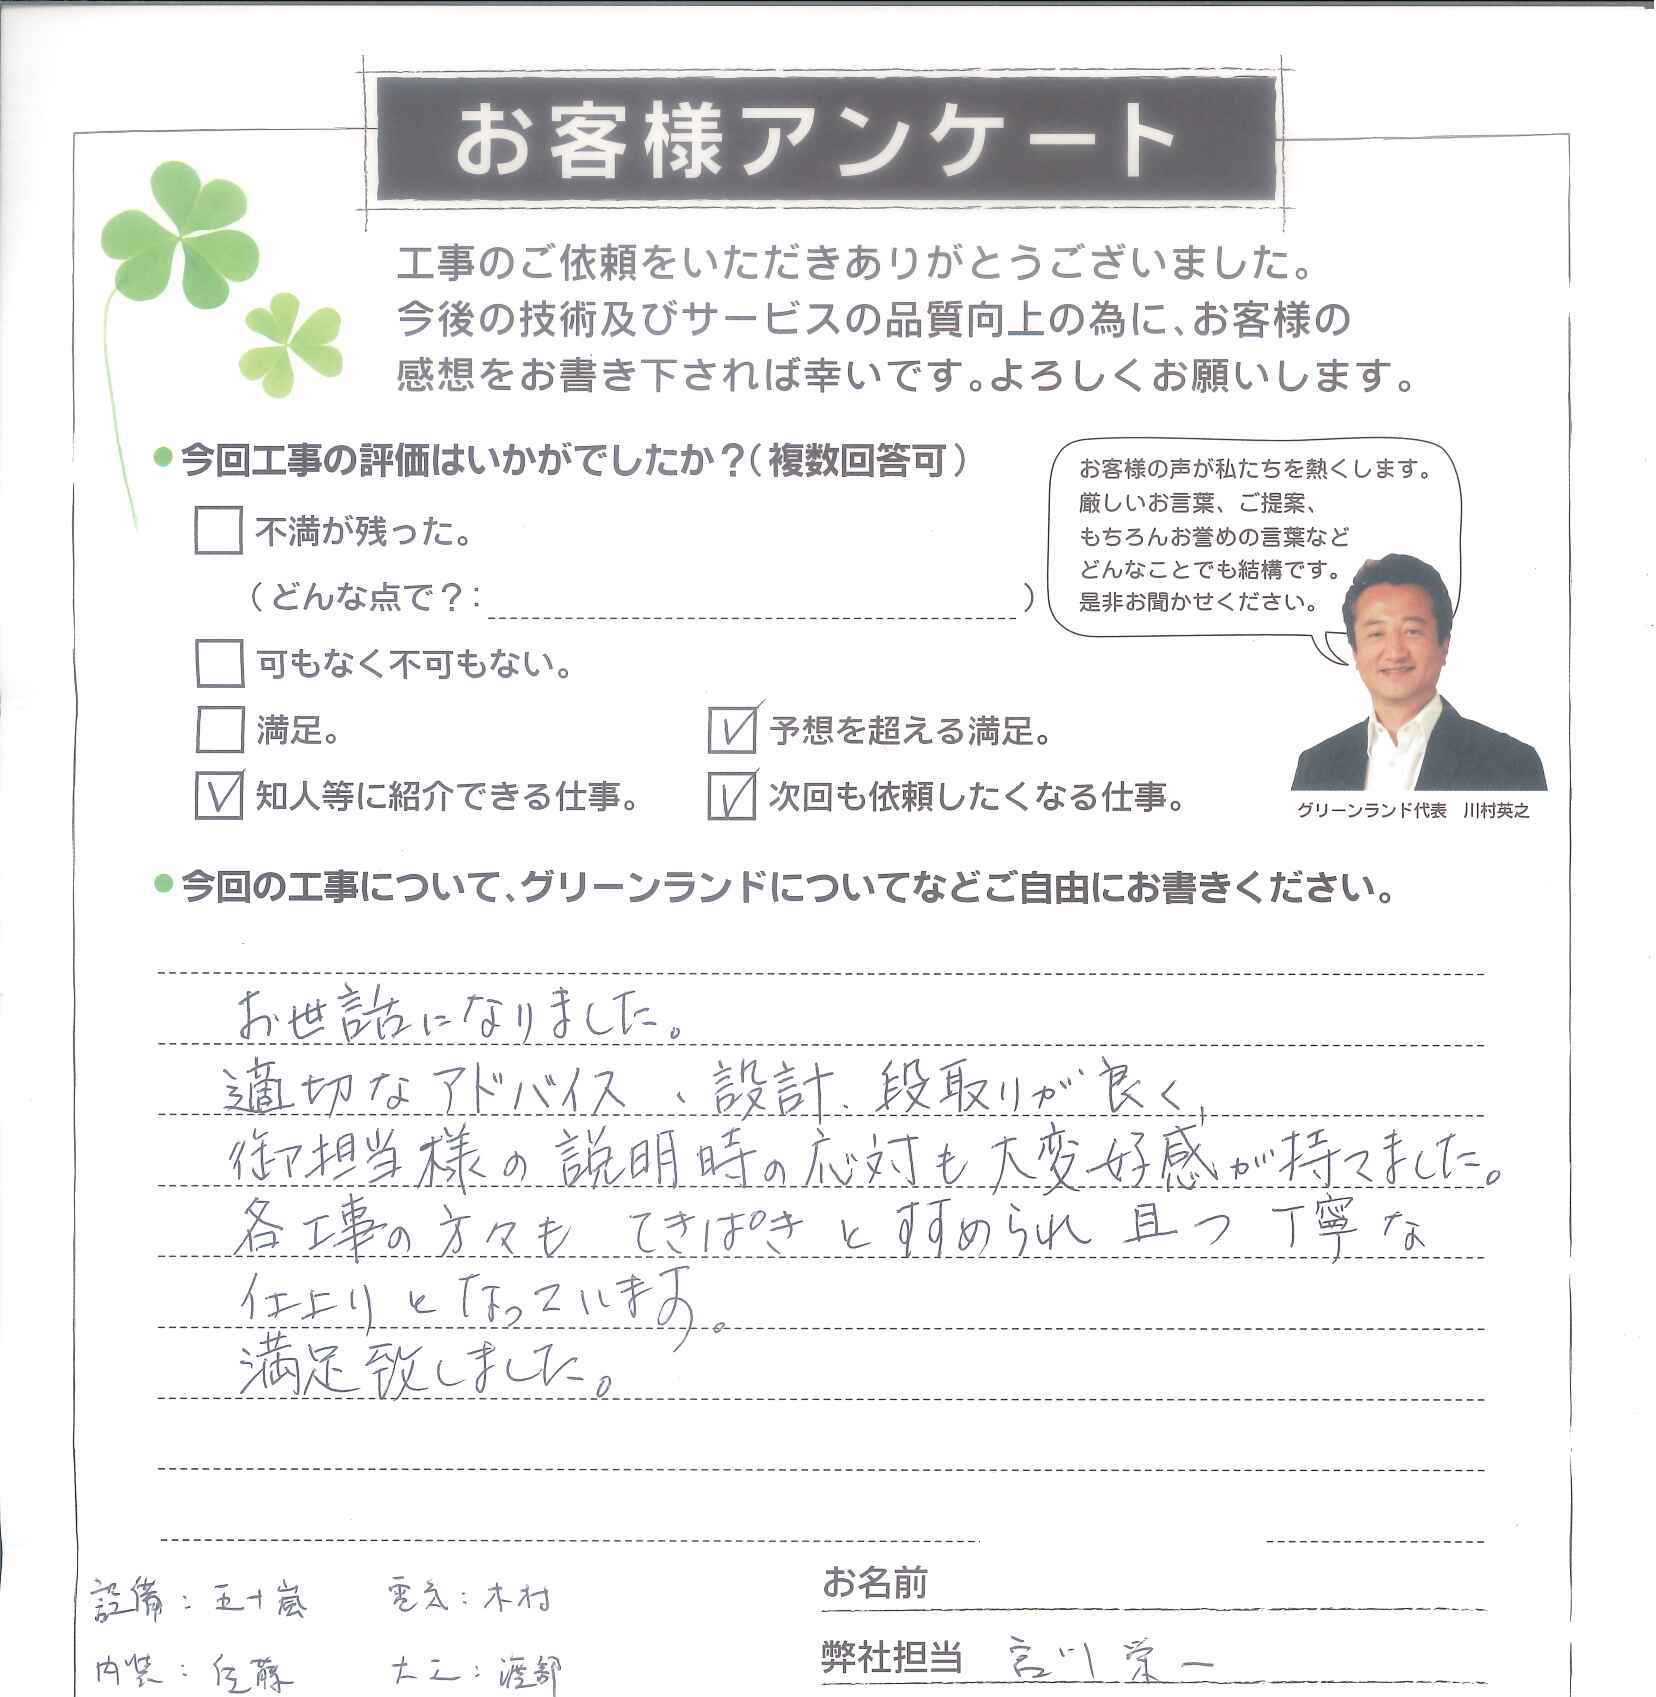 お客様アンケート
工事のご依頼をいただきありがとうございました。
今後の技術及びサービスの品質向上の為に、お客様の
感想をお書き下されば幸いです。よろしくお願いします。
●今回工事の評価はいかがでしたか？（複数回答可）
不満が残った。
（どんな点で？： ）
可もなく不可もない。
満足。
予想を超える満足。
知人等に紹介できる仕事。
次回も依頼したくなる仕事。
お客様の声が私たちを熱くします。
厳しいお言葉、ご提案、
もちろんお誉めの言葉など
どんなことでも結構です。
是非お聞かせください。
グリーンランド代表 川村英之
●今回の工事について、グリーンランドについてなどご自由にお書きください。
お世話になりました。
適切なアドバイス、設計、段取りが良く、
御担当様の説明時の応対も大変好感が持てました。
各工事の方々も てきぱきとすすめられ 且つ 丁寧な
仕上りとなっています。
満足致しました。
設備：五十嵐 電気：木村
内装：佐藤 大工：渡部
お名前
弊社担当 宮川栄一